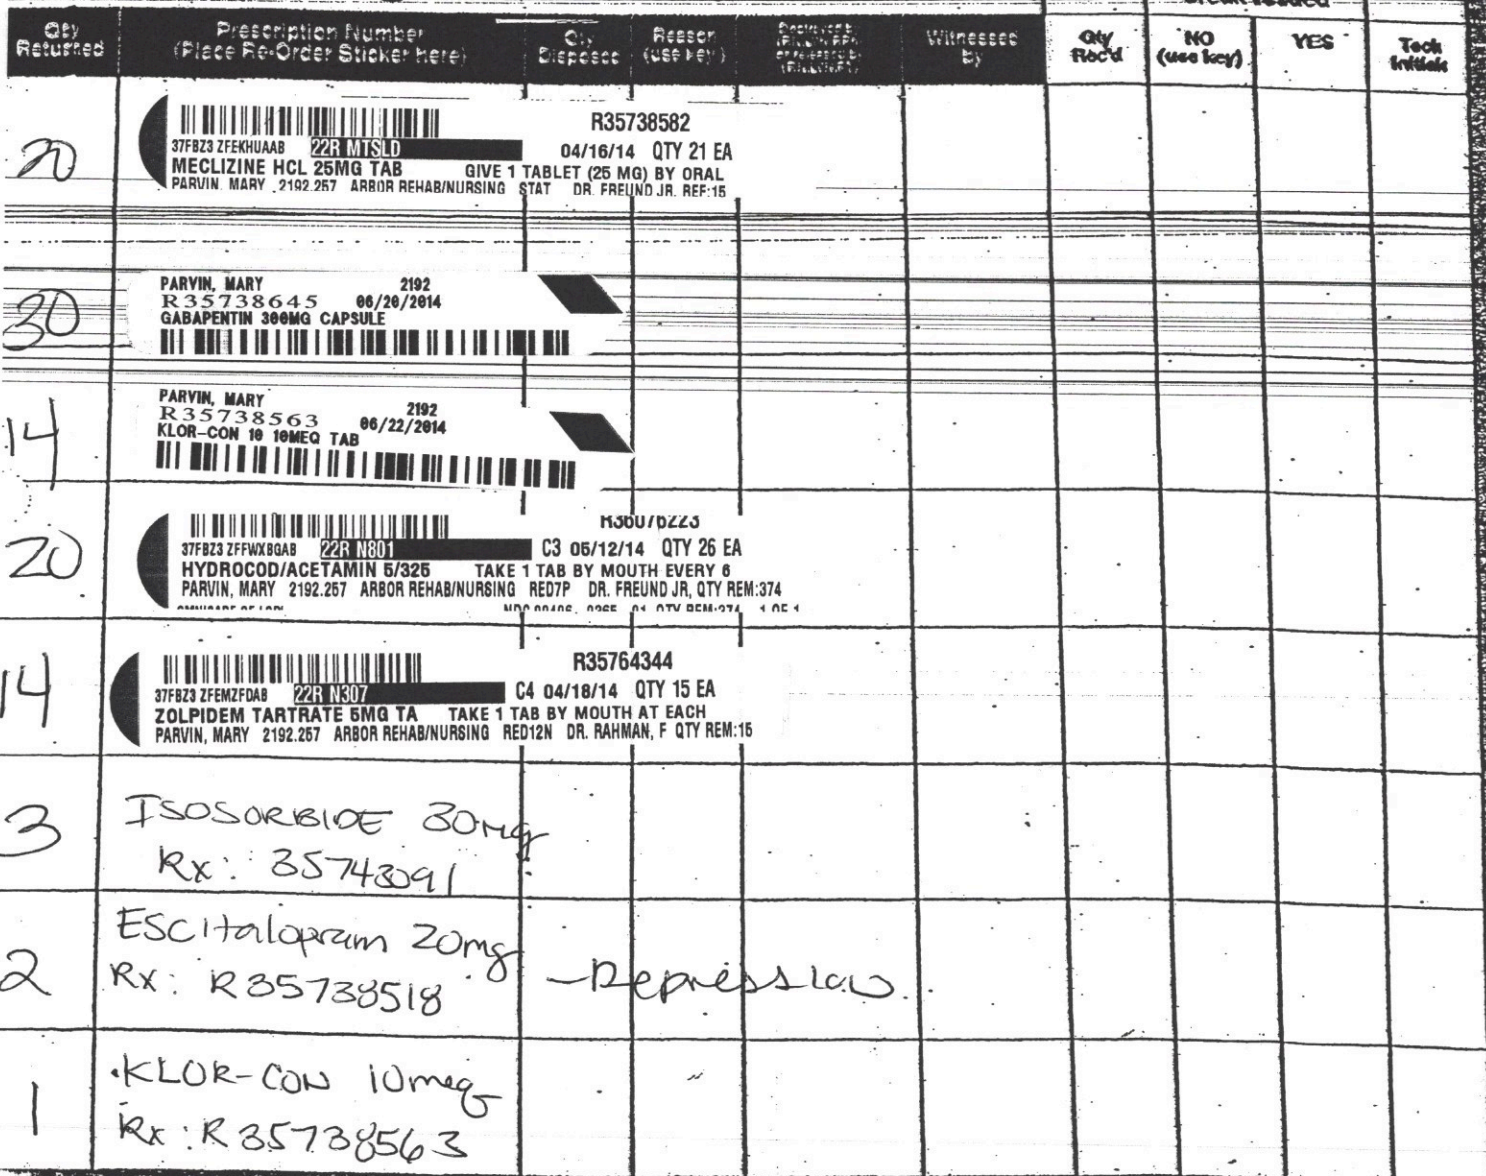 Qty Returned
Prescription Number
(Place Re-Order Sticker here)
Qty Disposed
Reason (use key)
Witnessed By
Qty Rec'd
NO (use key)
YES
Tech Initials
20
R35738582
37FBZ3 ZFEKHUAAB 22R MTSLD 04/16/14 QTY 21 EA
MECLIZINE HCL 25MG TAB GIVE 1 TABLET (25 MG) BY ORAL
PARVIN, MARY 2192.257 ARBOR REHAB/NURSING STAT DR. FREUND JR. REF:15
30
PARVIN, MARY 2192
R35738645 06/20/2014
GABAPENTIN 300MG CAPSULE
14
PARVIN, MARY 2192
R35738563 06/22/2014
KLOR-CON 10 10MEQ TAB
20
R36076223
37FBZ3 ZFFWXBGAB 22R N801 C3 05/12/14 QTY 26 EA
HYDROCOD/ACETAMIN 5/325 TAKE 1 TAB BY MOUTH EVERY 6
PARVIN, MARY 2192.257 ARBOR REHAB/NURSING RED7P DR. FREUND JR, QTY REM:374
14
R35764344
37FBZ3 ZFEMZFDAB 22R N307 C4 04/18/14 QTY 15 EA
ZOLPIDEM TARTRATE 5MG TA TAKE 1 TAB BY MOUTH AT EACH
PARVIN, MARY 2192.257 ARBOR REHAB/NURSING RED12N DR. RAHMAN, F QTY REM:15
3
ISOSORBIDE 30mg
Rx: 35743091
2
ESCItalopram 20mg
Rx: R35738518 -Depression
1
KLOR-CON 10meq
Rx: R35738563